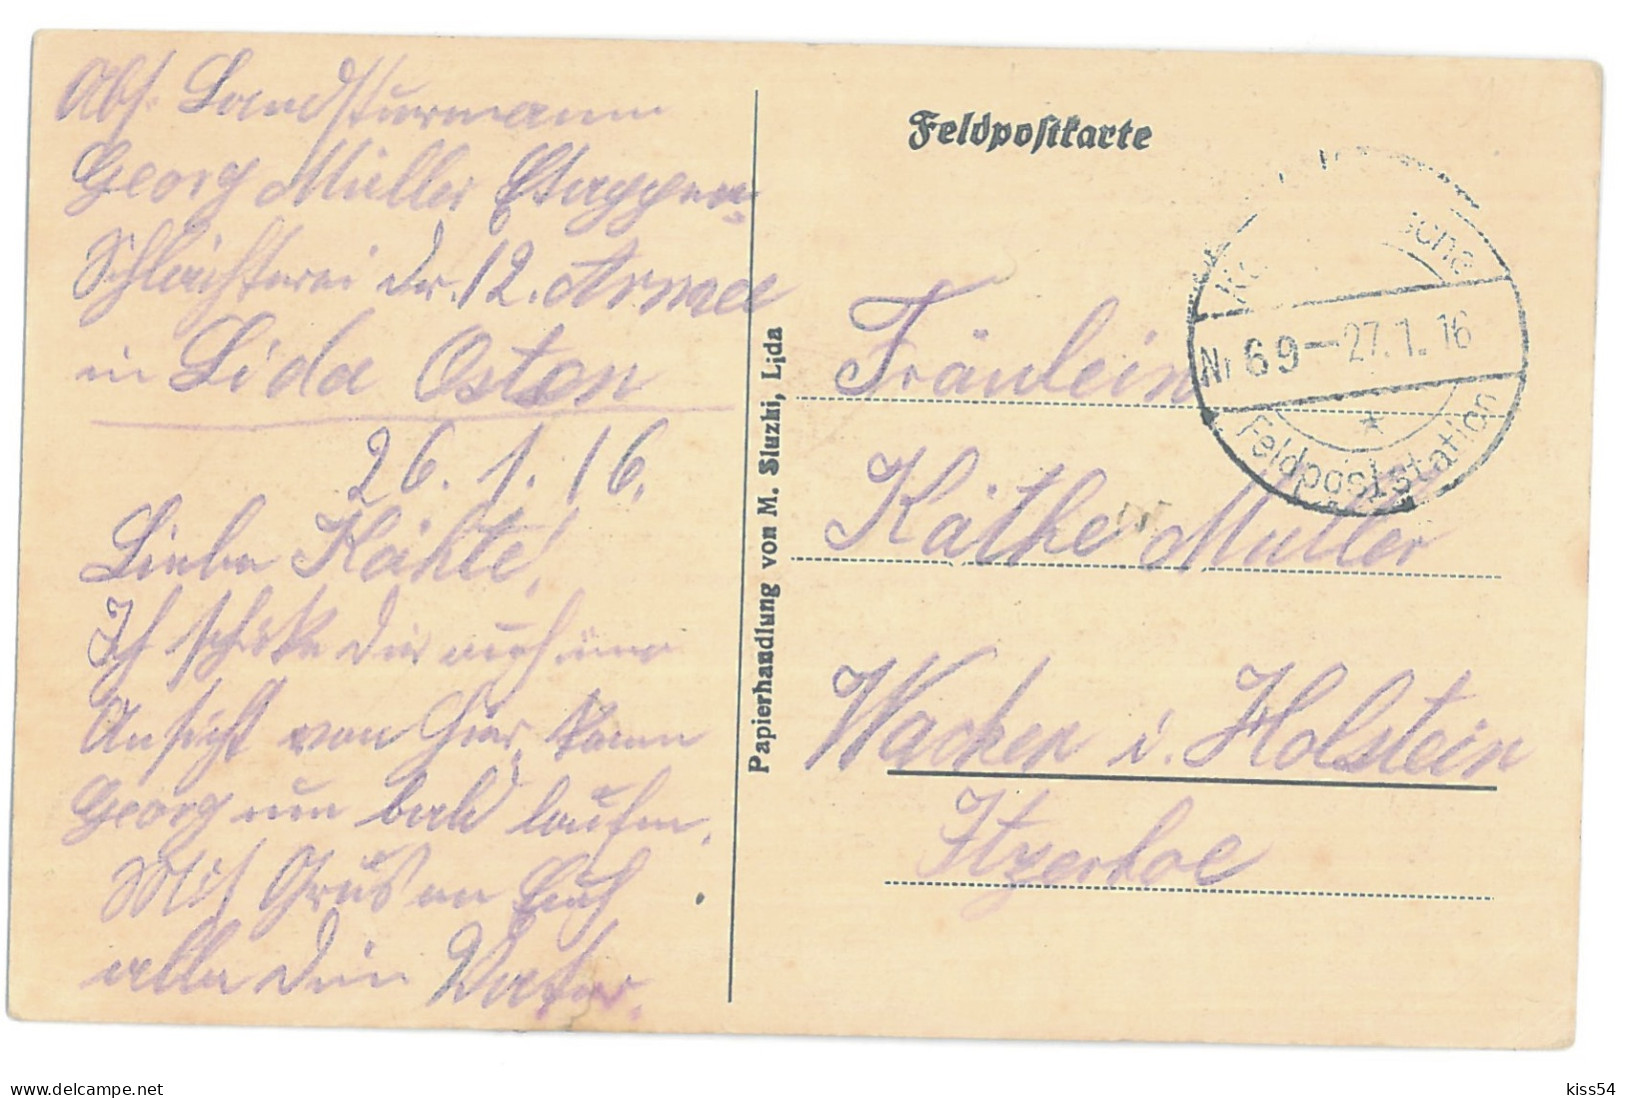 Abs. Landsturmann
Georg Müller Etappen-
Schlächterei der 12. Armee
in Lida Osten
26.1.16.
Liebe Käthe!
Ich schicke dir auch eine
Ansicht von hier, kann
Georg nun bald laufen.
Mit Gruß an Euch
alle dein Vater.
Papierhandlung von M. Sluzki, Lida
Feldpostkarte
Nr 69 - 27.1.16
Feldpoststation
Fräulein
Käthe Müller
Wacken i. Holstein
Itzerhoe
kiss54